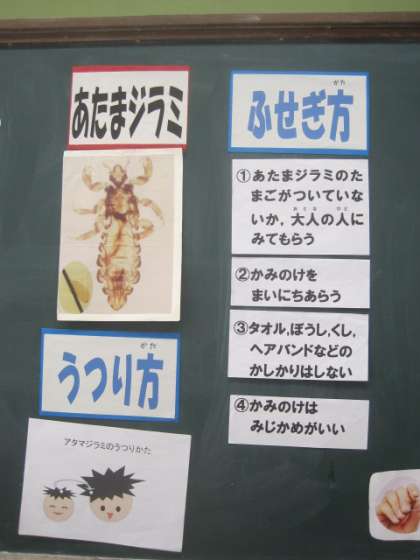 あたまジラミ
うつり方
アタマジラミのうつりかた
ふせぎ方
①あたまジラミのた
まごがついていな
いか，大人の人に
みてもらう
②かみのけを
まいにちあらう
③タオル,ぼうし,くし,
ヘアバンドなどの
かしかりはしない
④かみのけは
みじかめがいい